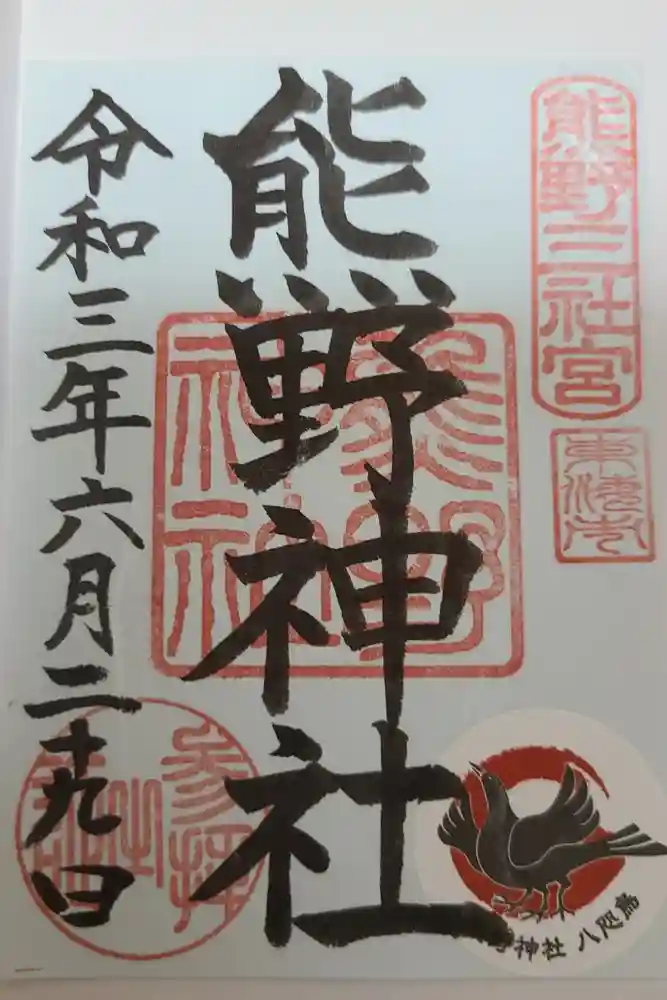 熊野三社宮
東海市
熊野神社
熊野神社
参拝
令和三年六月二十九日
神社 八咫烏